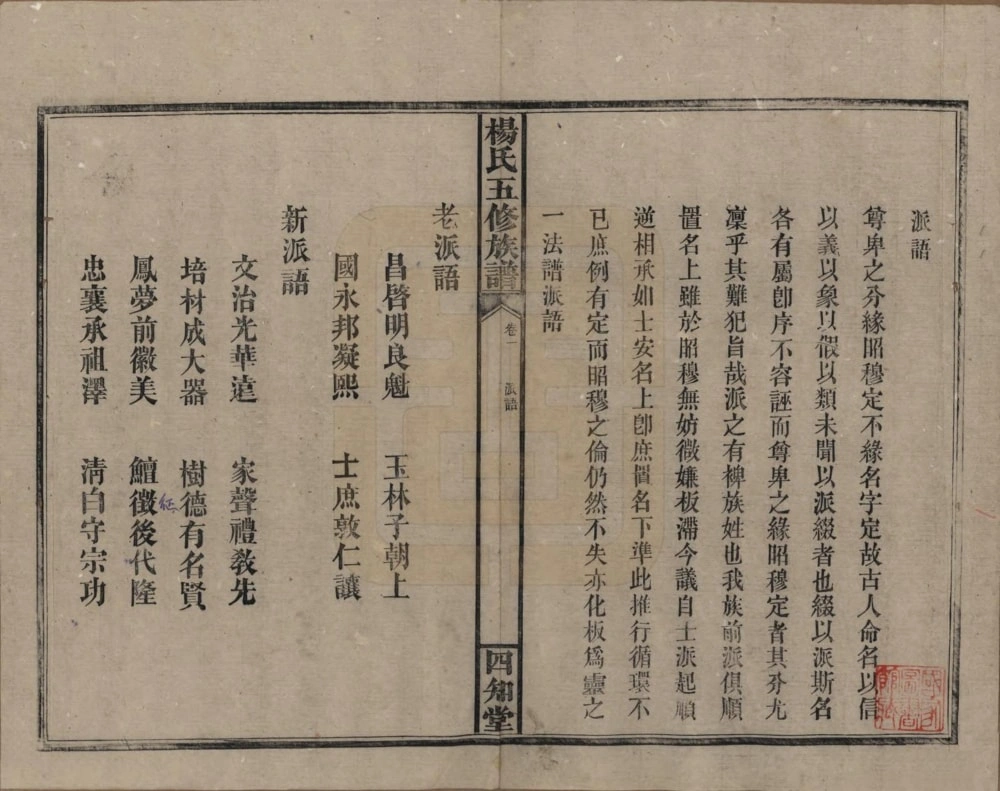 派語
尊卑之分緣昭穆定不緣名字定故古人命名以信
以義以象以假以類未聞以派綴者也綴以派斯名
各有屬卽序不容誣而尊卑之緣昭穆定者其分尤
凜乎其難犯旨哉派之有裨族姓也我族前派俱順
置名上雖於昭穆無妨微嫌板滯今議自士派起順
逆相承如士安名上卽庶置名下準此推行循環不
已庶例有定而昭穆之倫仍然不失亦化板爲靈之
一法譜派語
楊氏五修族譜
卷一
派語
四知堂
老派語
昌啓明良魁 玉林子朝上
國永邦凝熙 士庶敦仁讓
新派語
文治光華遠 家聲禮敎先
培材成大器 樹德有名賢
鳳夢前徽美 鱣徵後代隆
忠襄承祖澤 淸白守宗功